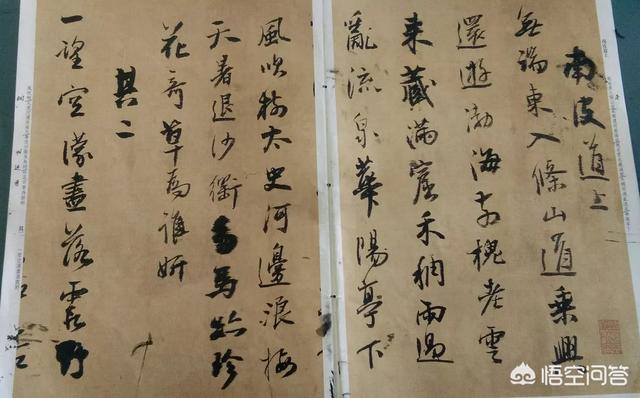 南皮道上
無端東入條山道乘興
還遊渤海槐老雲
來藏滿窟禾稠雨過
亂流泉華陽亭下
風吹樹太史河邊浪拍
天暑退沙衝馬跡珍
花奇草為誰妍
其二
一望空濛盡落霞野
悟空问答